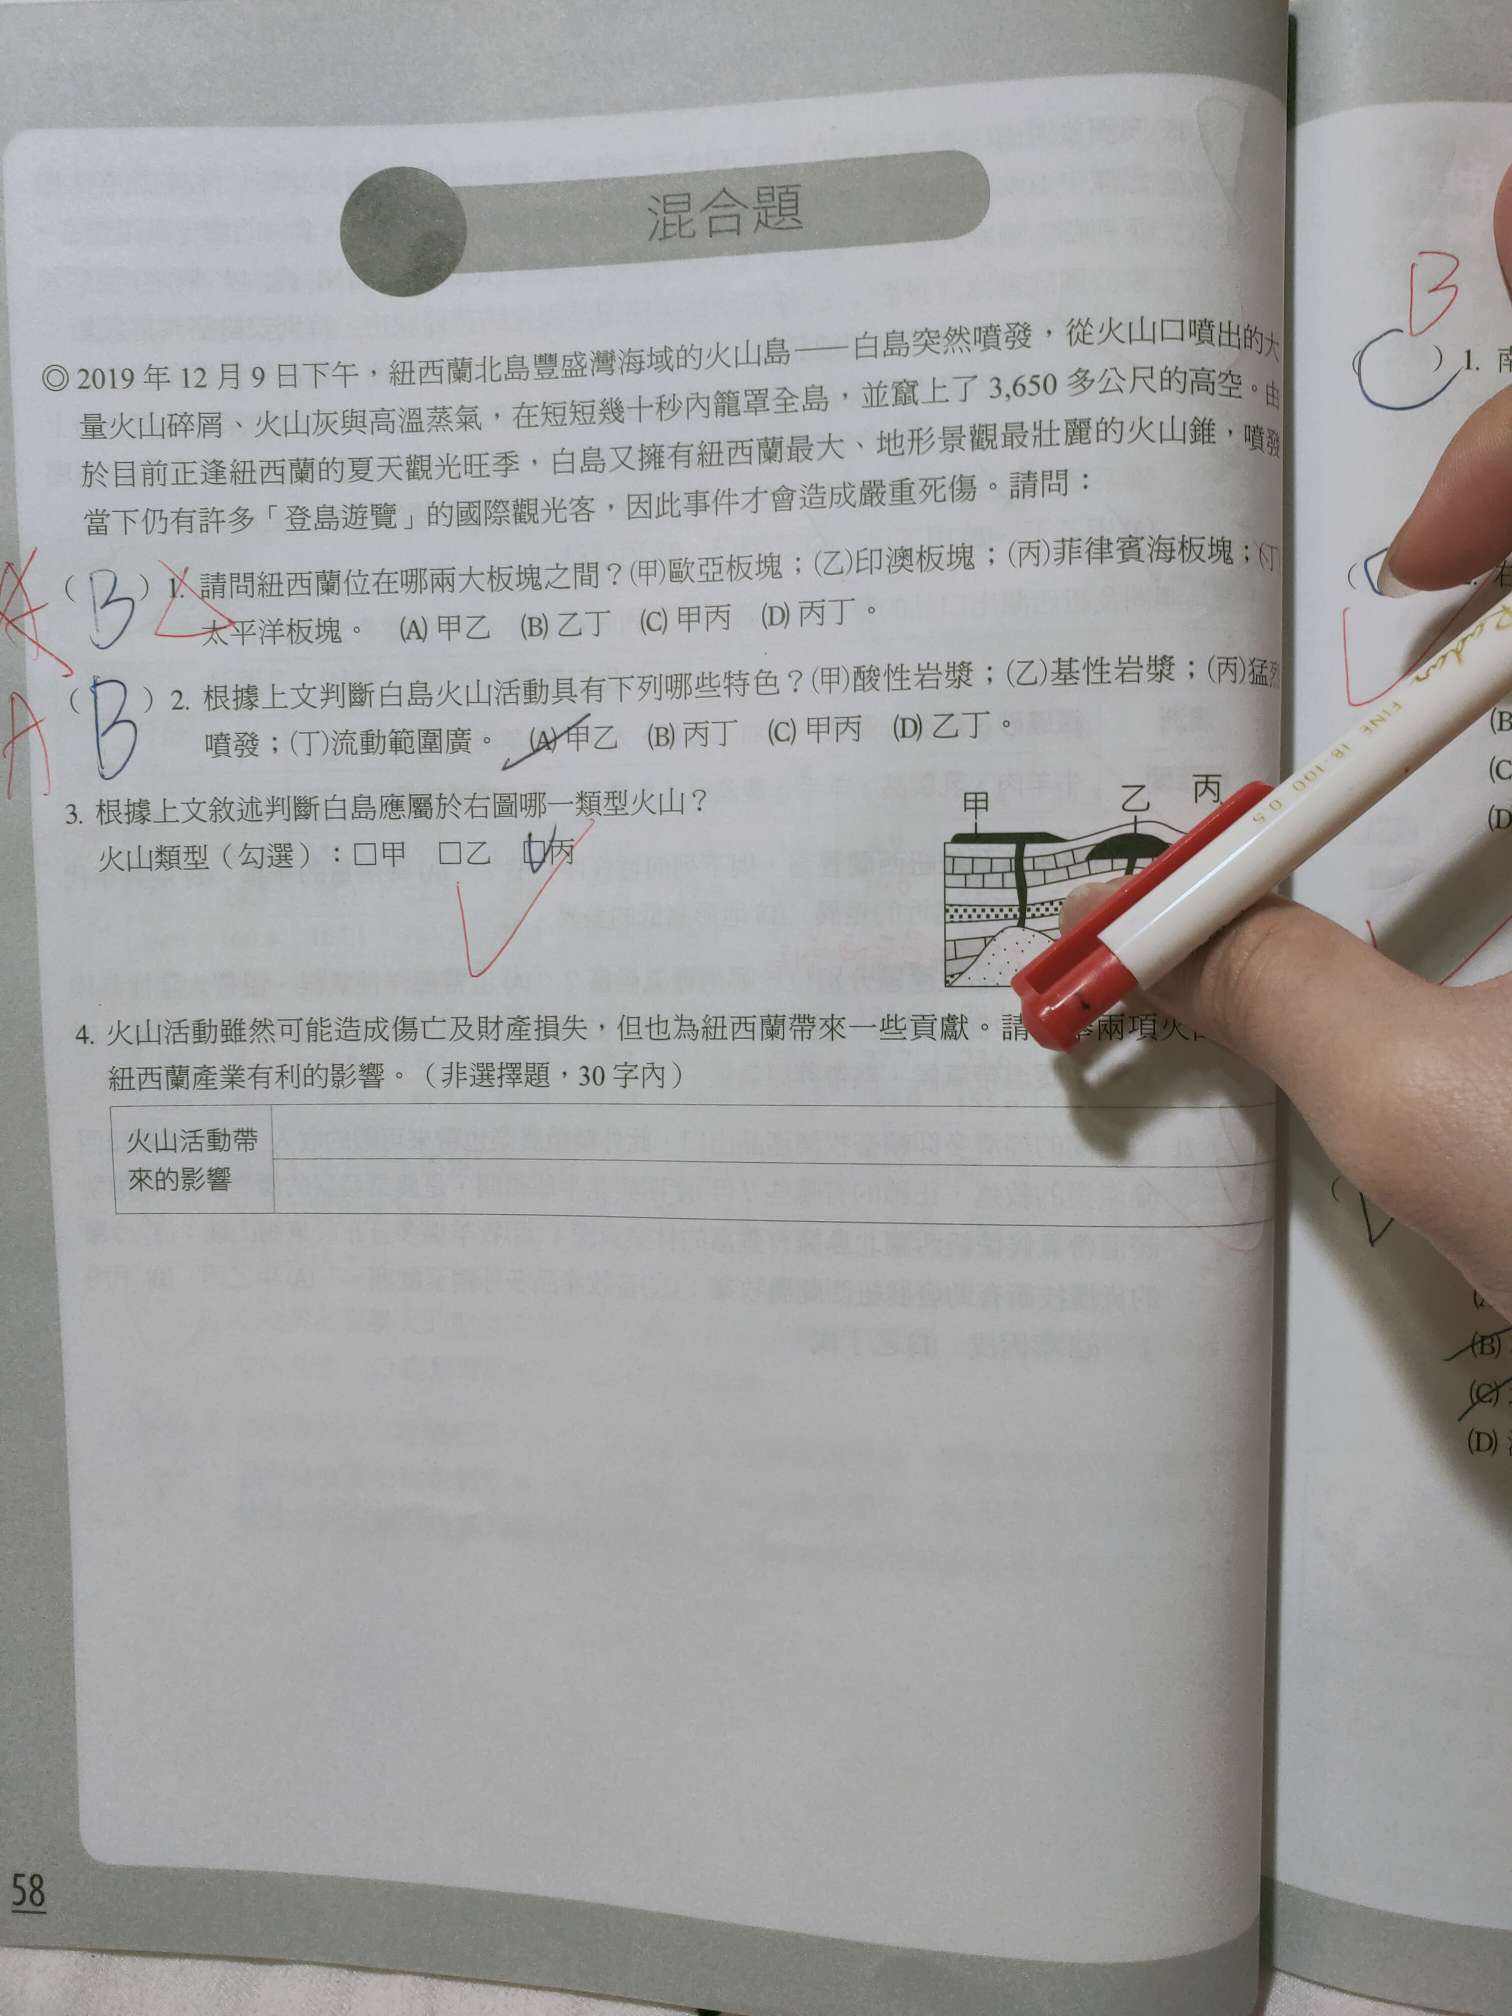 混合題
◎ 2019 年 12 月 9 日下午，紐西蘭北島豐盛灣海域的火山島——白島突然噴發，從火山口噴出的大
量火山碎屑、火山灰與高溫蒸氣，在短短幾十秒內籠罩全島，並竄上了 3,650 多公尺的高空。由
於目前正逢紐西蘭的夏天觀光旺季，白島又擁有紐西蘭最大、地形景觀最壯麗的火山錐，噴發
當下仍有許多「登島遊覽」的國際觀光客，因此事件才會造成嚴重死傷。請問：
A
（ B ）1. 請問紐西蘭位在哪兩大板塊之間？(甲)歐亞板塊；(乙)印澳板塊；(丙)菲律賓海板塊；(丁
太平洋板塊。 (A) 甲乙 (B) 乙丁 (C) 甲丙 (D) 丙丁。
A
（ B ）2. 根據上文判斷白島火山活動具有下列哪些特色？(甲)酸性岩漿；(乙)基性岩漿；(丙)猛烈
噴發；(丁)流動範圍廣。 (A) 甲乙 (B) 丙丁 (C) 甲丙 (D) 乙丁。
3. 根據上文敘述判斷白島應屬於右圖哪一類型火山？
火山類型（勾選）：□甲 □乙 □丙
甲 乙 丙
4. 火山活動雖然可能造成傷亡及財產損失，但也為紐西蘭帶來一些貢獻。請 兩項火
紐西蘭產業有利的影響。（非選擇題，30 字內）
火山活動帶
來的影響
58
B
（ C ）1. 南
(B
(C
(D
(B)
(C)
(D)
FINE 18-100 0.5